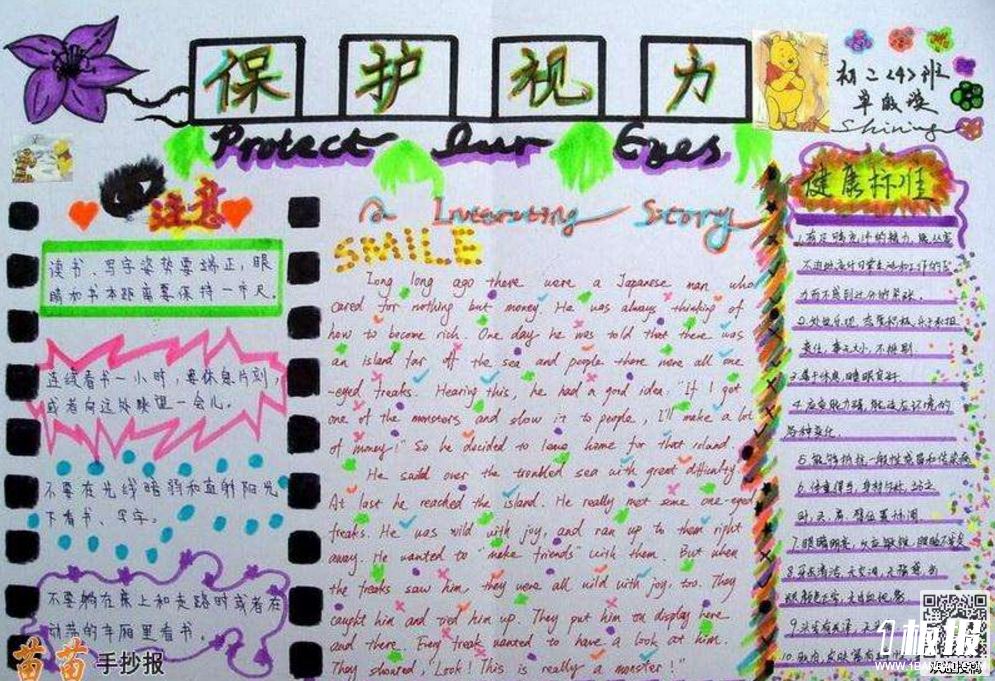 保护视力
初二〈4〉班
Shining
Protect Our Eyes
注意
读书、写字姿势要端正，眼
睛和书本距离要保持一市尺。
连续看书一小时，要休息片刻，
或者向远处眺望一会儿。
不要在光线暗弱和直射阳光
下看书、写字。
不要躺在床上和走路时或者在
动荡的车厢里看书。
A Interesting Story
SMILE
Long long ago there were a Japanese man who
cared for nothing but money. He was always thinking of
how to become rich. One day he was told that there was
an island far off the sea and people there were all one
-eyed freaks. Hearing this, he had a good idea: "If I got
one of the monsters and show it to people, I'll make a lot
of money!" So he decided to leave home for that island.
He sailed over the troubled sea with great difficulty.
At last he reached the island. He really met some one-eyed
freaks. He was wild with joy, and ran up to them right
away. He wanted to "make friends" with them. But when
the freaks saw him, they were all wild with joy, too. They
caught him and tied him up. They put him on display here
and there. Every freak wanted to have a look at him.
They shouted, "Look! This is really a monster!"
健康标
1.有足够充沛的精力，能从容
不迫地应付日常生活和工作的压
力而不感到过分的紧张。
2.处世乐观，态度积极，乐于承担
责任，事无大小，不挑剔。
3.善于休息，睡眠良好。
4.应变能力强，能适应环境的
各种变化。
5.能够抵抗一般性感冒和传染病
6.体重得当，身材匀称，站立
时，头、肩、臂位置协调。
7.眼睛明亮，反应敏锐，眼睑不发炎
8.牙齿清洁，无空洞，无痛感，
9.头发有光泽，无
苗苗手抄报
1板报
WWW.1BANBAO.COM
欢迎投稿